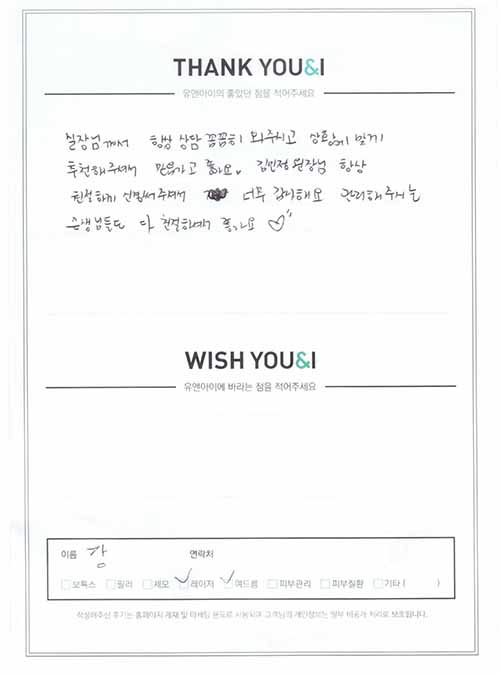 THANK YOU&I
유앤아이의 좋았던 점을 적어주세요
실장님께서 항상 상담 꼼꼼히 봐주시고 상황에 맞게
추천해주셔서 믿음가고 좋아요. 김민정 원장님 항상
친절하게 신경써주셔서 너무 감사해요 관리해주시는
선생님들도 다 친절하셔서 좋아요 ♡
WISH YOU&I
유앤아이에 바라는 점을 적어주세요
이름 강 연락처
보톡스 필러 제모 ✓레이저 ✓여드름 피부관리 피부질환 기타 ( )
작성해주신 후기는 홈페이지 게재 및 마케팅 용도로 사용되며 고객님의 개인정보는 일부 비공개 처리로 보호됩니다.